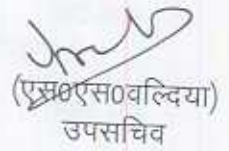 (एस०एस०वल्दिया)
उपसचिव